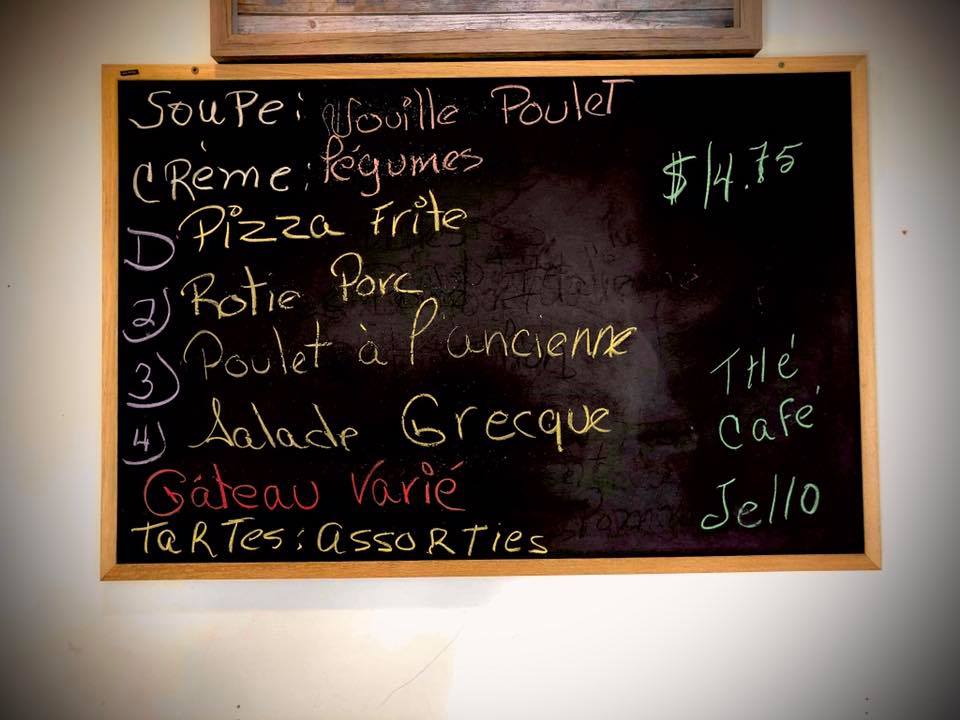 Soupe: Nouille Poulet
Crème: légumes
$14.75
1) Pizza Frite
2) Rotie Porc
3) Poulet à l'ancienne
Thé
4) Salade Grecque
Café
Gâteau Varié
Jello
Tartes: Assorties